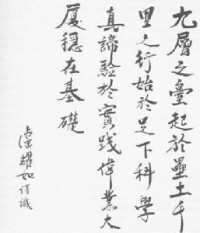 九層之臺起於壘土千
里之行始於足下科學
真諦驗於實践偉業大
厦穩在基礎
盧耀如謹識